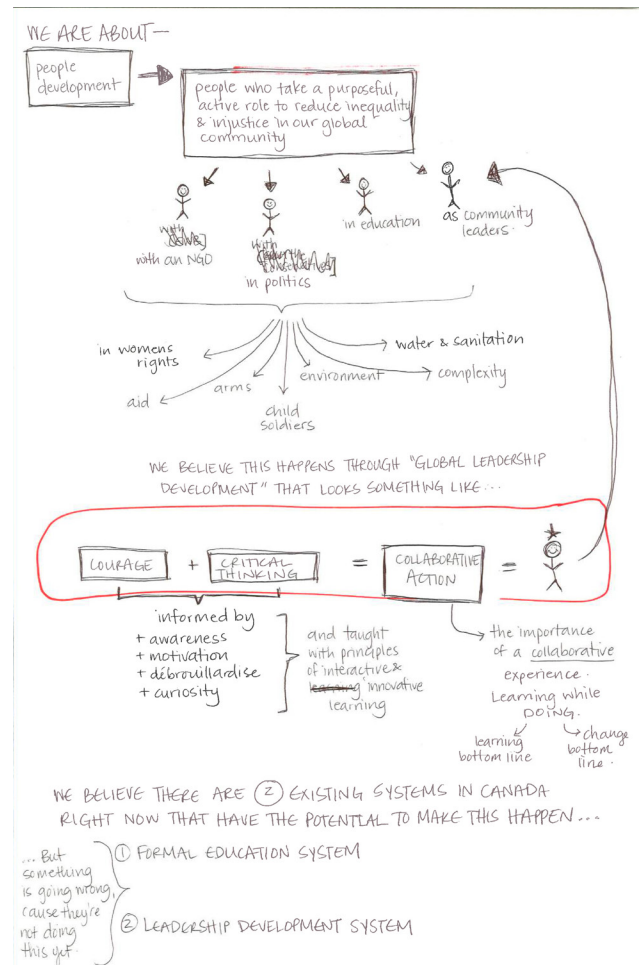 WE ARE ABOUT—
people
development
people who take a purposeful,
active role to reduce inequality
& injustice in our global
community
with
with an NGO
with
in politics
in education
as community
leaders.
in womens
rights
aid
arms
child
soldiers
environment
water & sanitation
complexity
WE BELIEVE THIS HAPPENS THROUGH "GLOBAL LEADERSHIP
DEVELOPMENT" THAT LOOKS SOMETHING LIKE...
COURAGE + CRITICAL
THINKING = COLLABORATIVE
ACTION =
informed by
+ awareness
+ motivation
+ débrouillardise
+ curiosity
and taught
with principles
of interactive &
learning innovative
learning
the importance
of a collaborative
experience.
Learning while
DOING.
learning
bottom line
change
bottom
line.
WE BELIEVE THERE ARE 2 EXISTING SYSTEMS IN CANADA
RIGHT NOW THAT HAVE THE POTENTIAL TO MAKE THIS HAPPEN...
... But
something
is going wrong,
cause they're
not doing
this yet.
1 FORMAL EDUCATION SYSTEM
2 LEADERSHIP DEVELOPMENT SYSTEM